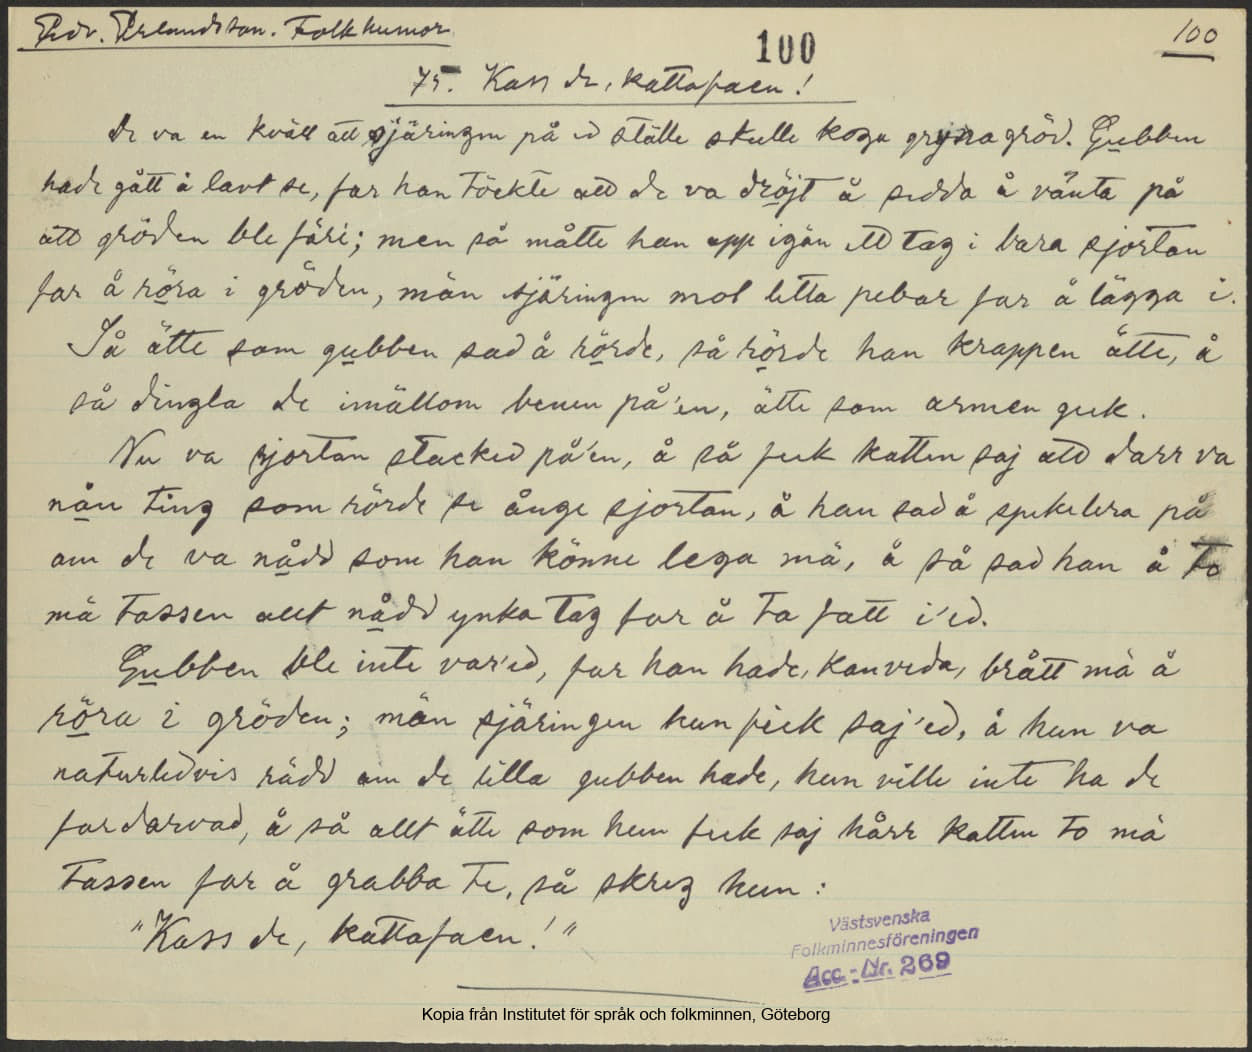 Edv. Erlandsson. Folkhumor
100
100
75. Kass de, kattafaen!
De va en kväll att sjäringen på ed ställe skulle koga grynagröd. Gubben
hade gått å lavt se, far han töckte att de va dröjt å sedda å vänta på
att gröden ble färi; men så måtte han opp igän ett tag i bara sjortan
far å röra i gröden, män sjäringen mol letta pebar far å lägga i.
Så ätte som gubben sad å rörde, så rörde han krappen ätte, å
så dingla de imällom benen på'en, ätte som armen gek.
Nu va sjortan stacked på'en, å så fek katten saj att darr va
nån ting som rörde se ånge sjortan, å han sad å spekelera på
am de va nådd som han könne lega mä, å så sad han å to
mä tassen allt nådd ynka tag far å ta fatt i'ed.
Gubben ble inte var'ed, far han hade, kanveda, brått mä å
röra i gröden; män sjäringen hun feck saj'ed, å hun va
naturledvis rädd am de lilla gubben hade, hun ville inte ha de
fardarvad, å så allt ätte som hun fek saj hårr katten to mä
tassen far å grabba te, så skreg hun:
"Kass de, kattafaen!"
Västsvenska
Folkminnesföreningen
Acc.-Nr. 269
Kopia från Institutet för språk och folkminnen, Göteborg